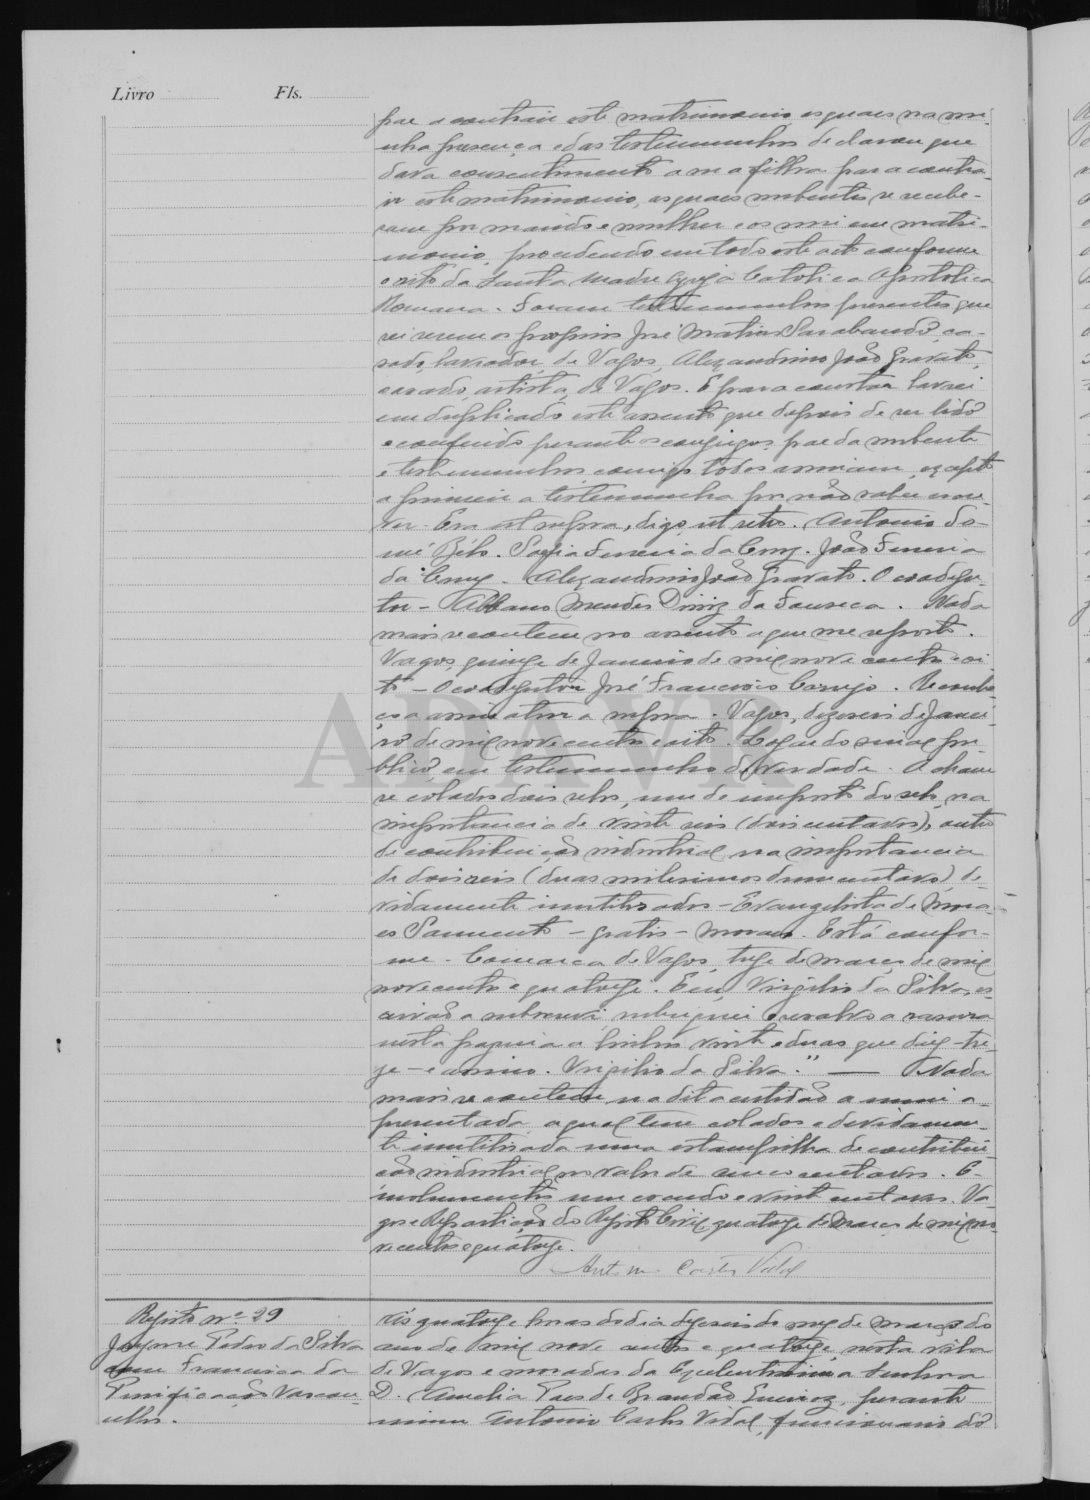 Livro Fls.
pae a contrair este matrimonio, as quaes na mi-
nha presença e das testemunhas declarou que
dava consentimento a sua filha para contra-
ir este matrimonio, os quaes nubentes se recebe-
ram por marido e mulher e os uni em matri-
monio, procedendo em todo este acto conforme
o rito da Santa Madre Egreja Catolica Apostolica
Romana. Foram testemunhas presentes que
sei serem os proprios José Matias Sarabando, ca-
sado, lavrador, de Vagos, Alexandrino João Gravato,
casado, artista, de Vagos. E para constar lavrei
em duplicado este assento que depois de ser lido
e conferido perante os conjuges, pae da nubente
e testemunhas comigo todos assinam, excepto
a primeira testemunha por não saber escre-
ver. Era ut supra, digo, ut retro. Antonio Do-
mé Bélo. Ferreira da Cruz. João Ferreira
da Cruz. Alexandrino João Gravato. O coadju-
tor - Albano Mendes Diniz da Fonseca. Nada
mais se contem no assento a que me reporto.
Vagos, quinze de Janeiro de mil nove centos e oi-
to - O coadjutor José Francisco Corujo. Reconhe-
ço a assinatura supra. Vagos, dezeseis de Janei-
ro de mil nove centos e oito. Logar do sinal pu-
blico em testemunho de verdade. Acham
se colados dois selos, um de imposto do selo, na
importancia de vinte reis (dois centavos), outro
de contribuição industrial na importancia
de dois reis (duas milesimos dum centavo), de-
vidamente inutilisados - Evangelista de Mora-
es Sarmento - gratis - Moraes. Está confor-
me. Comarca de Vagos, treze de março de mil
novecentos e quatorze. E eu, Virgilio da Silva, es-
crivão a subscrevi rubriquei e resalvo a rasura
nesta pagina a linhas vinte e duas que diz - tre-
ze - e assino. Virgilio da Silva." — Nada
mais se contem na dita certidão a mim a-
presentada, a qual tem colada e devidamen-
te inutilisada uma estampilha de contribui-
ção industrial no valor de cinco centavos. E-
molumentos um escudo e vinte centavos. Va-
gos e Repartição do Registo Civil, quatorze de Março de mil no-
vecentos e quatorze.
Antonio Carlos Vidal
Registo nº 29
Jayme Pedro da Silva
com Francisca da
Purificação Vascon-
cellos.
Ás quatorze horas do dia dezeseis do mez de março do
ano de mil nove centos e quatorze, nesta vila
de Vagos e moradas da Excelentissima Senhora
D. Amelia Paes de Brandão Queiroz, perante
mim Antonio Carlos Vidal, funcionario do
ADAVR